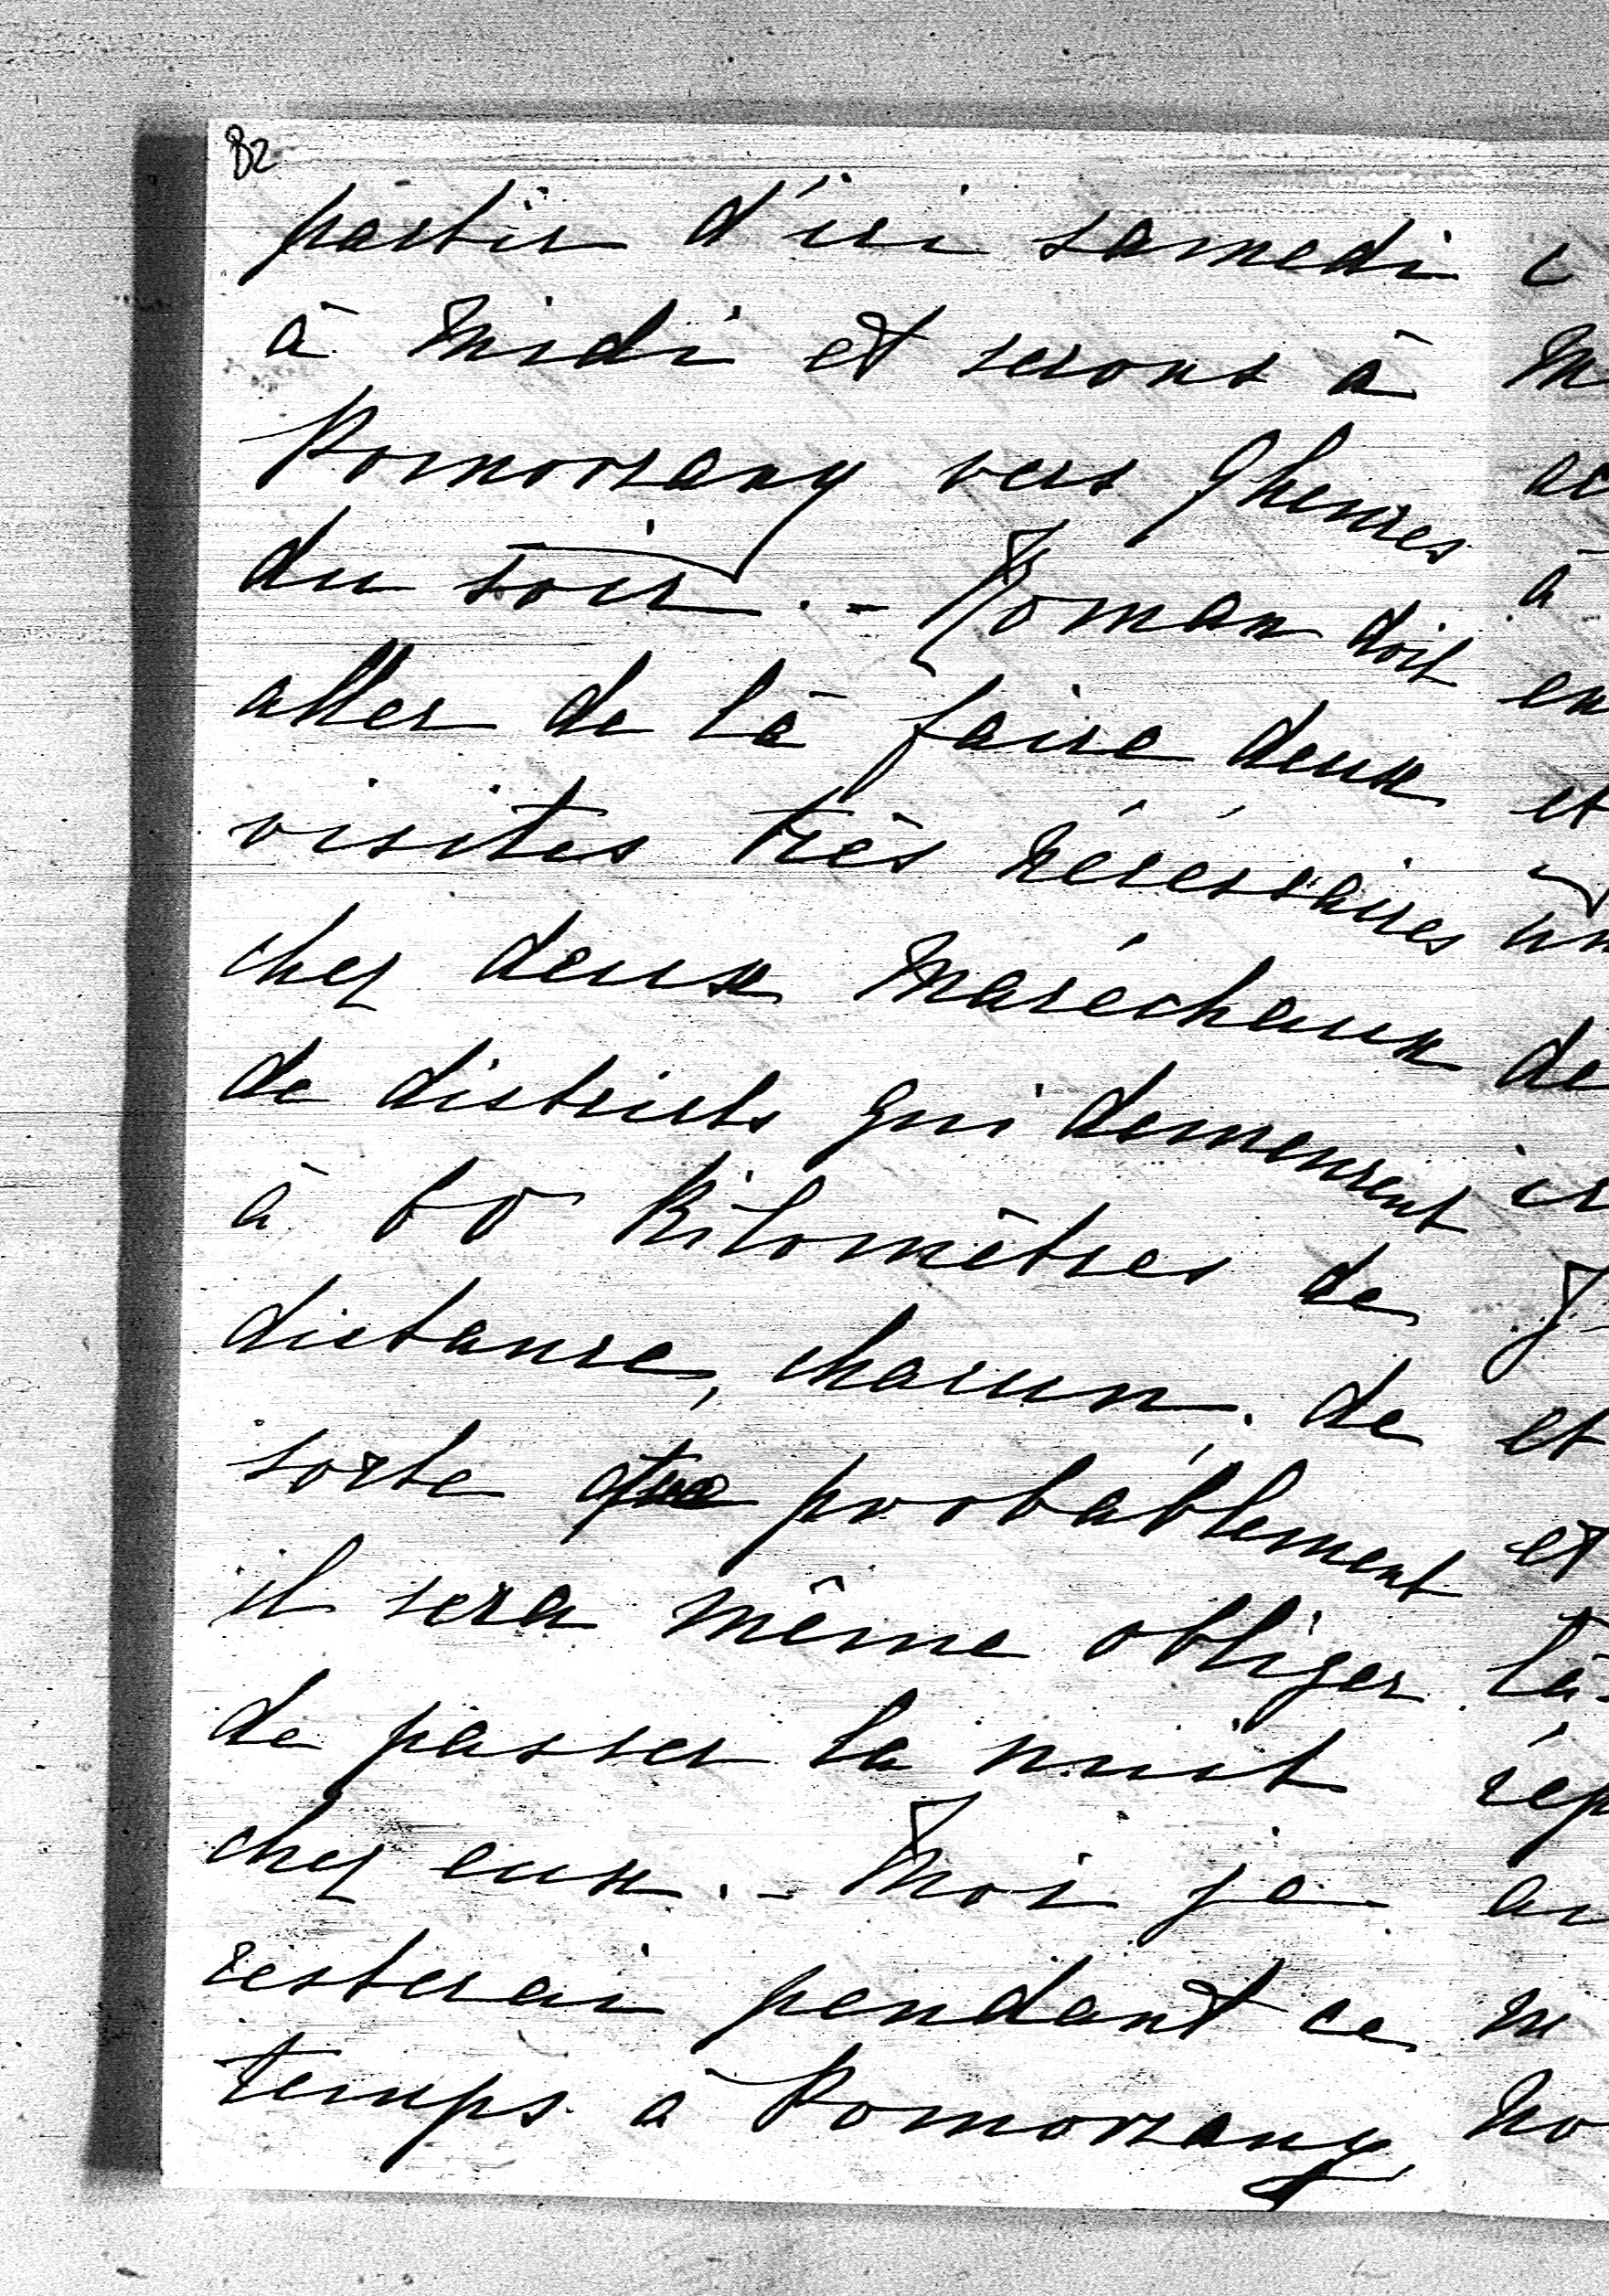 82
partir d'ici samedi
à midi et serons à
Pomorzany vers 9 heures
du soir. - Roman doit
aller de là faire deux
visites très nécessaires
chez deux maréchaux
de districts qui demeurent
à 60 kilomètres de
distance, chacun, de
sorte que probablement
il sera même obliger
de passer la nuit
chez eux. - Moi je
resterai pendant ce
temps à Pomorzany